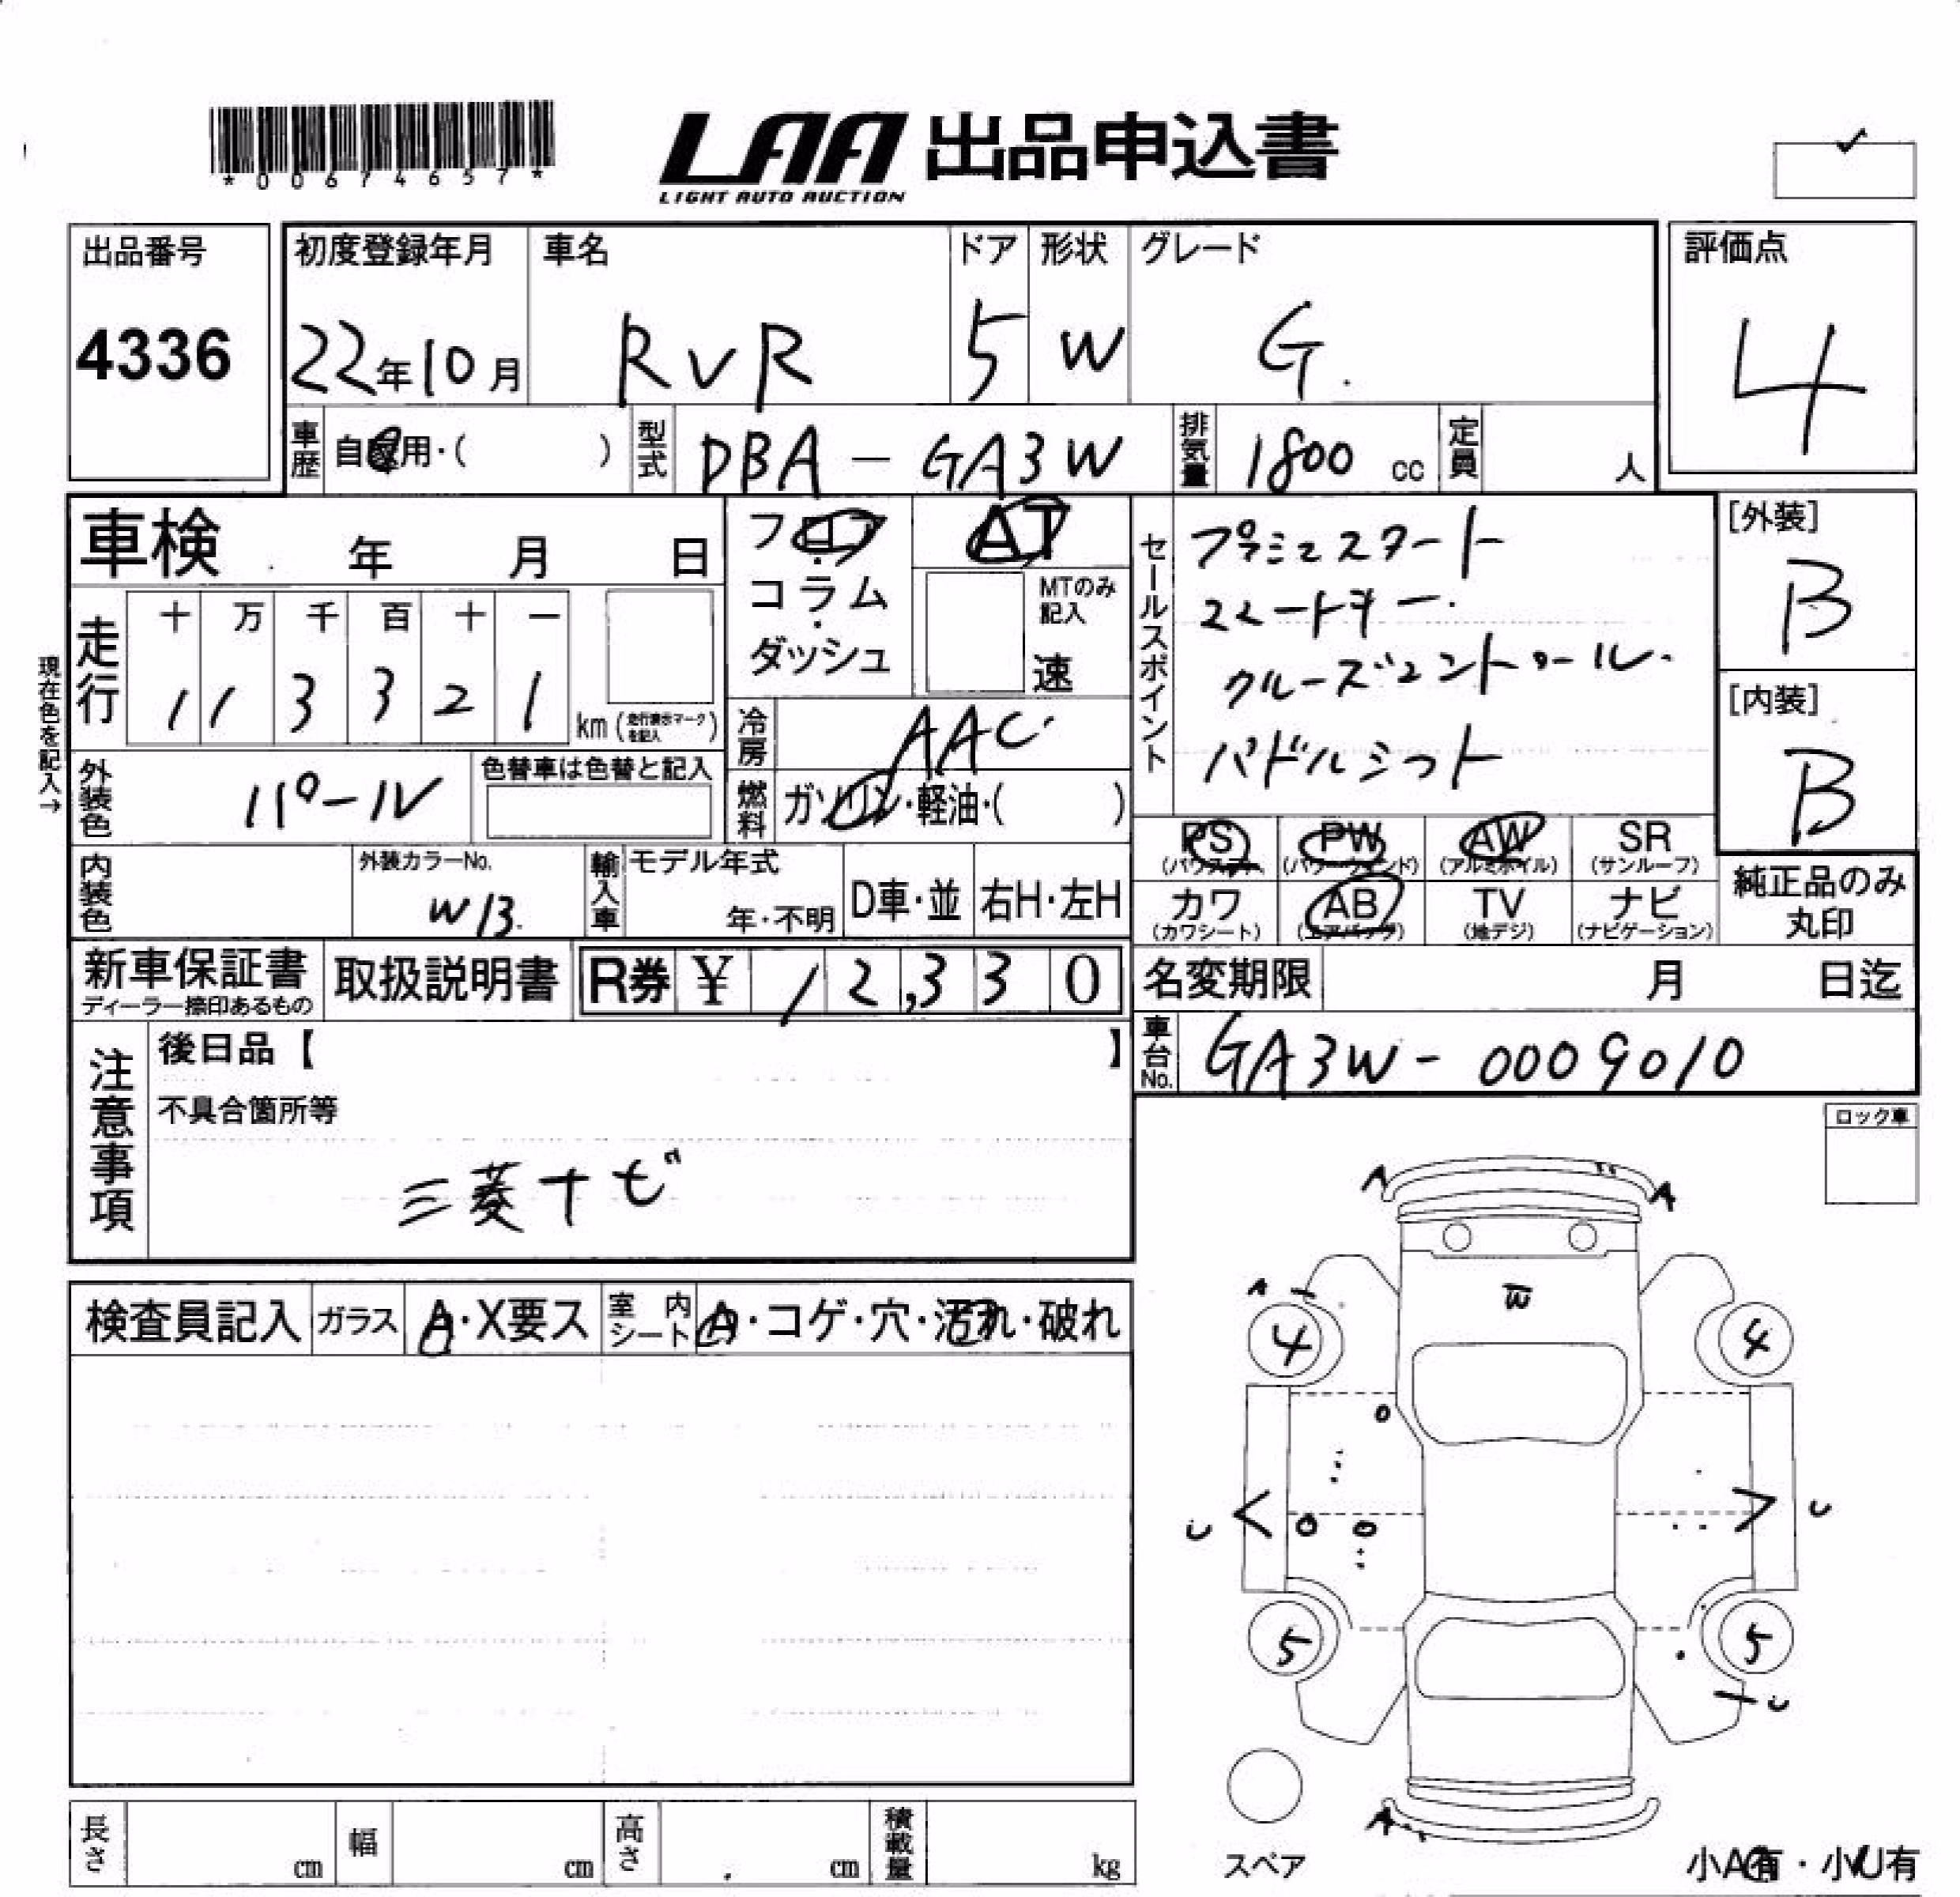 *00674657*
LAA 出品申込書
LIGHT AUTO AUCTION
出品番号
4336
初度登録年月
22年10月
車名
RVR
ドア
5
形状
W
グレード
G.
評価点
4
車歴
自家用・( )
型式
DBA-GA3W
排気量
1800 cc
定員
人
車検 年 月 日
フロア
・
コラム
・
ダッシュ
AT
MTのみ記入
速
セールスポイント
プッシュスタート
スマートキー.
クルーズコントロール.
パドルシフト
[外装]
B
[内装]
B
現在色を記入→
走行
十 万 千 百 十 一
1 1 3 3 2 1
km (走行表示マークを記入)
冷房
AAC
外装色
パール
色替車は色替と記入
燃料
ガソリン・軽油・( )
PS
(パワステ)
PW
(パワーウィンド)
AW
(アルミホイル)
SR
(サンルーフ)
カワ
(カワシート)
AB
(エアバッグ)
TV
(地デジ)
ナビ
(ナビゲーション)
純正品のみ
丸印
内装色
外装カラーNo.
W13.
輸入車
モデル年式
年・不明
D車・並
右H・左H
新車保証書
ディーラー捺印あるもの
取扱説明書
R券 ¥ 12,330
名変期限 月 日迄
車台No.
GA3W-0009010
注意事項
後日品【 】
不具合箇所等
三菱ナビ
ロック車
検査員記入
ガラス
A・X要ス
室内シート
A・コゲ・穴・汚れ・破れ
A
A
A
W
4
4
U
U
5
5
U
A
スペア
小A有・小U有
長さ cm
幅 cm
高さ cm
積載量 kg